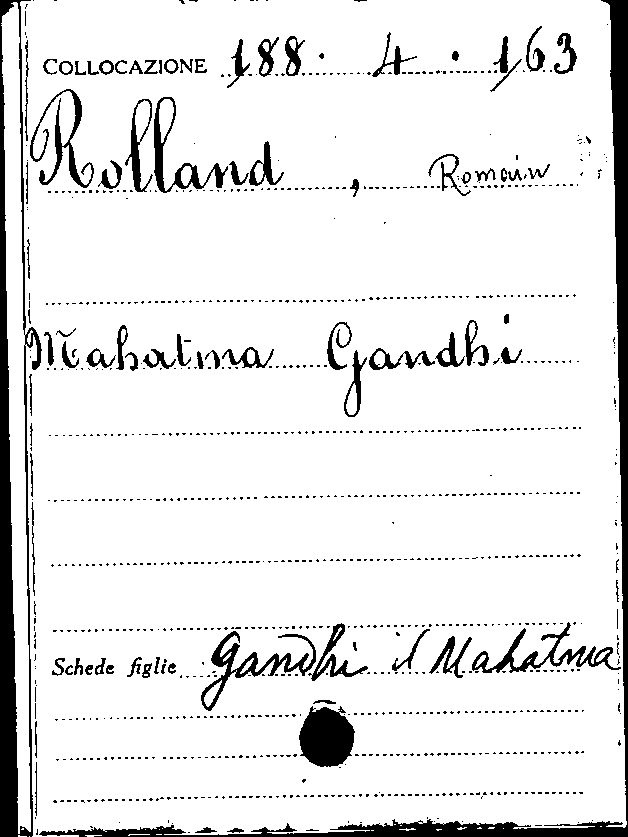 COLLOCAZIONE 188. 4. 163
Rolland, Romain
Mahatma Gandhi
Schede figlie Gandhi il Mahatma